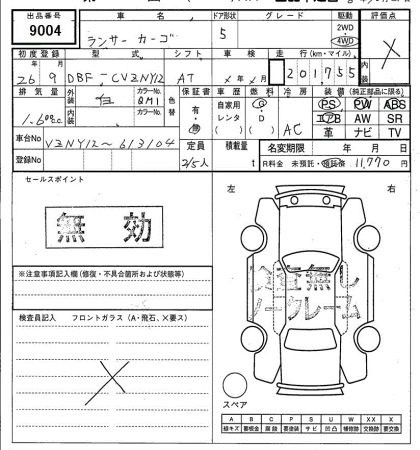 出品番号 車名 ドア形状 グレード 駆動 評価点
9004 ランサーカーゴ 5 2WD 4WD
初度登録 型式 シフト 車検 走行(km・マイル)
26 9 DBF-CVZNY12 AT × 年 × 月 201755
排気量 外装 カラーNo. 色替 保証書 車歴 燃料 冷房 装備(純正部品に限る)
1.6 cc 白 QM1 有・無 自家用 G PS PW ABS
内装 カラーNo. レンタ D AC エアB AW SR
( ) 革 ナビ TV
車台No VZNY12-613104 定員 積載量 名変期限 年 月 日
登録No 2/5人 t R料金 未預託・預託済 11,770 円
セールスポイント 左 右
無効
検査無し
ノークレーム
※注意事項記入欄(修復・不具合箇所および状態等)
検査員記入 フロントガラス(A・飛石、×要ス)
×
スペア
A B C P S U W XX X
線キズ 板金 腐蝕 要塗装 サビ 凹凸 補修跡 交換跡 要交換